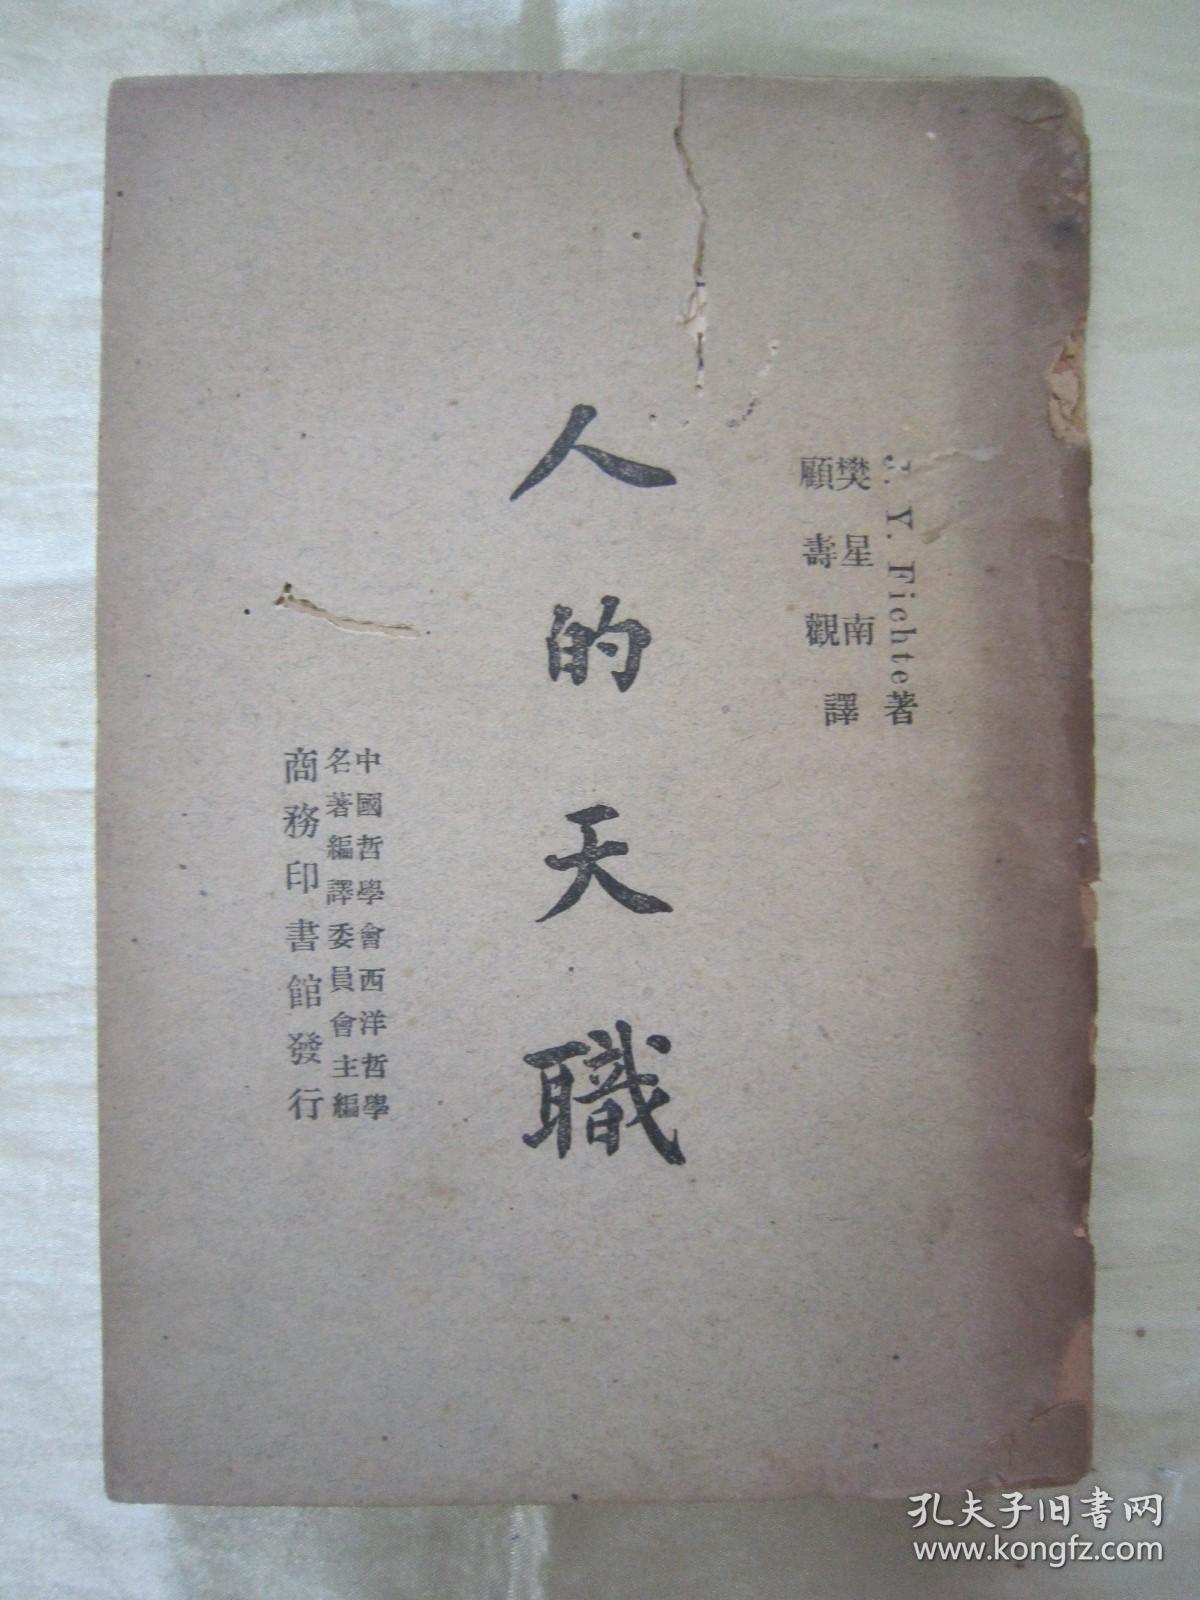 J. Y. Fichte著
樊星南
顧壽觀
譯
人的天職
中國哲學會西洋哲學
名著編譯委員會主編
商務印書館發行
孔夫子旧书网
www.kongfz.com